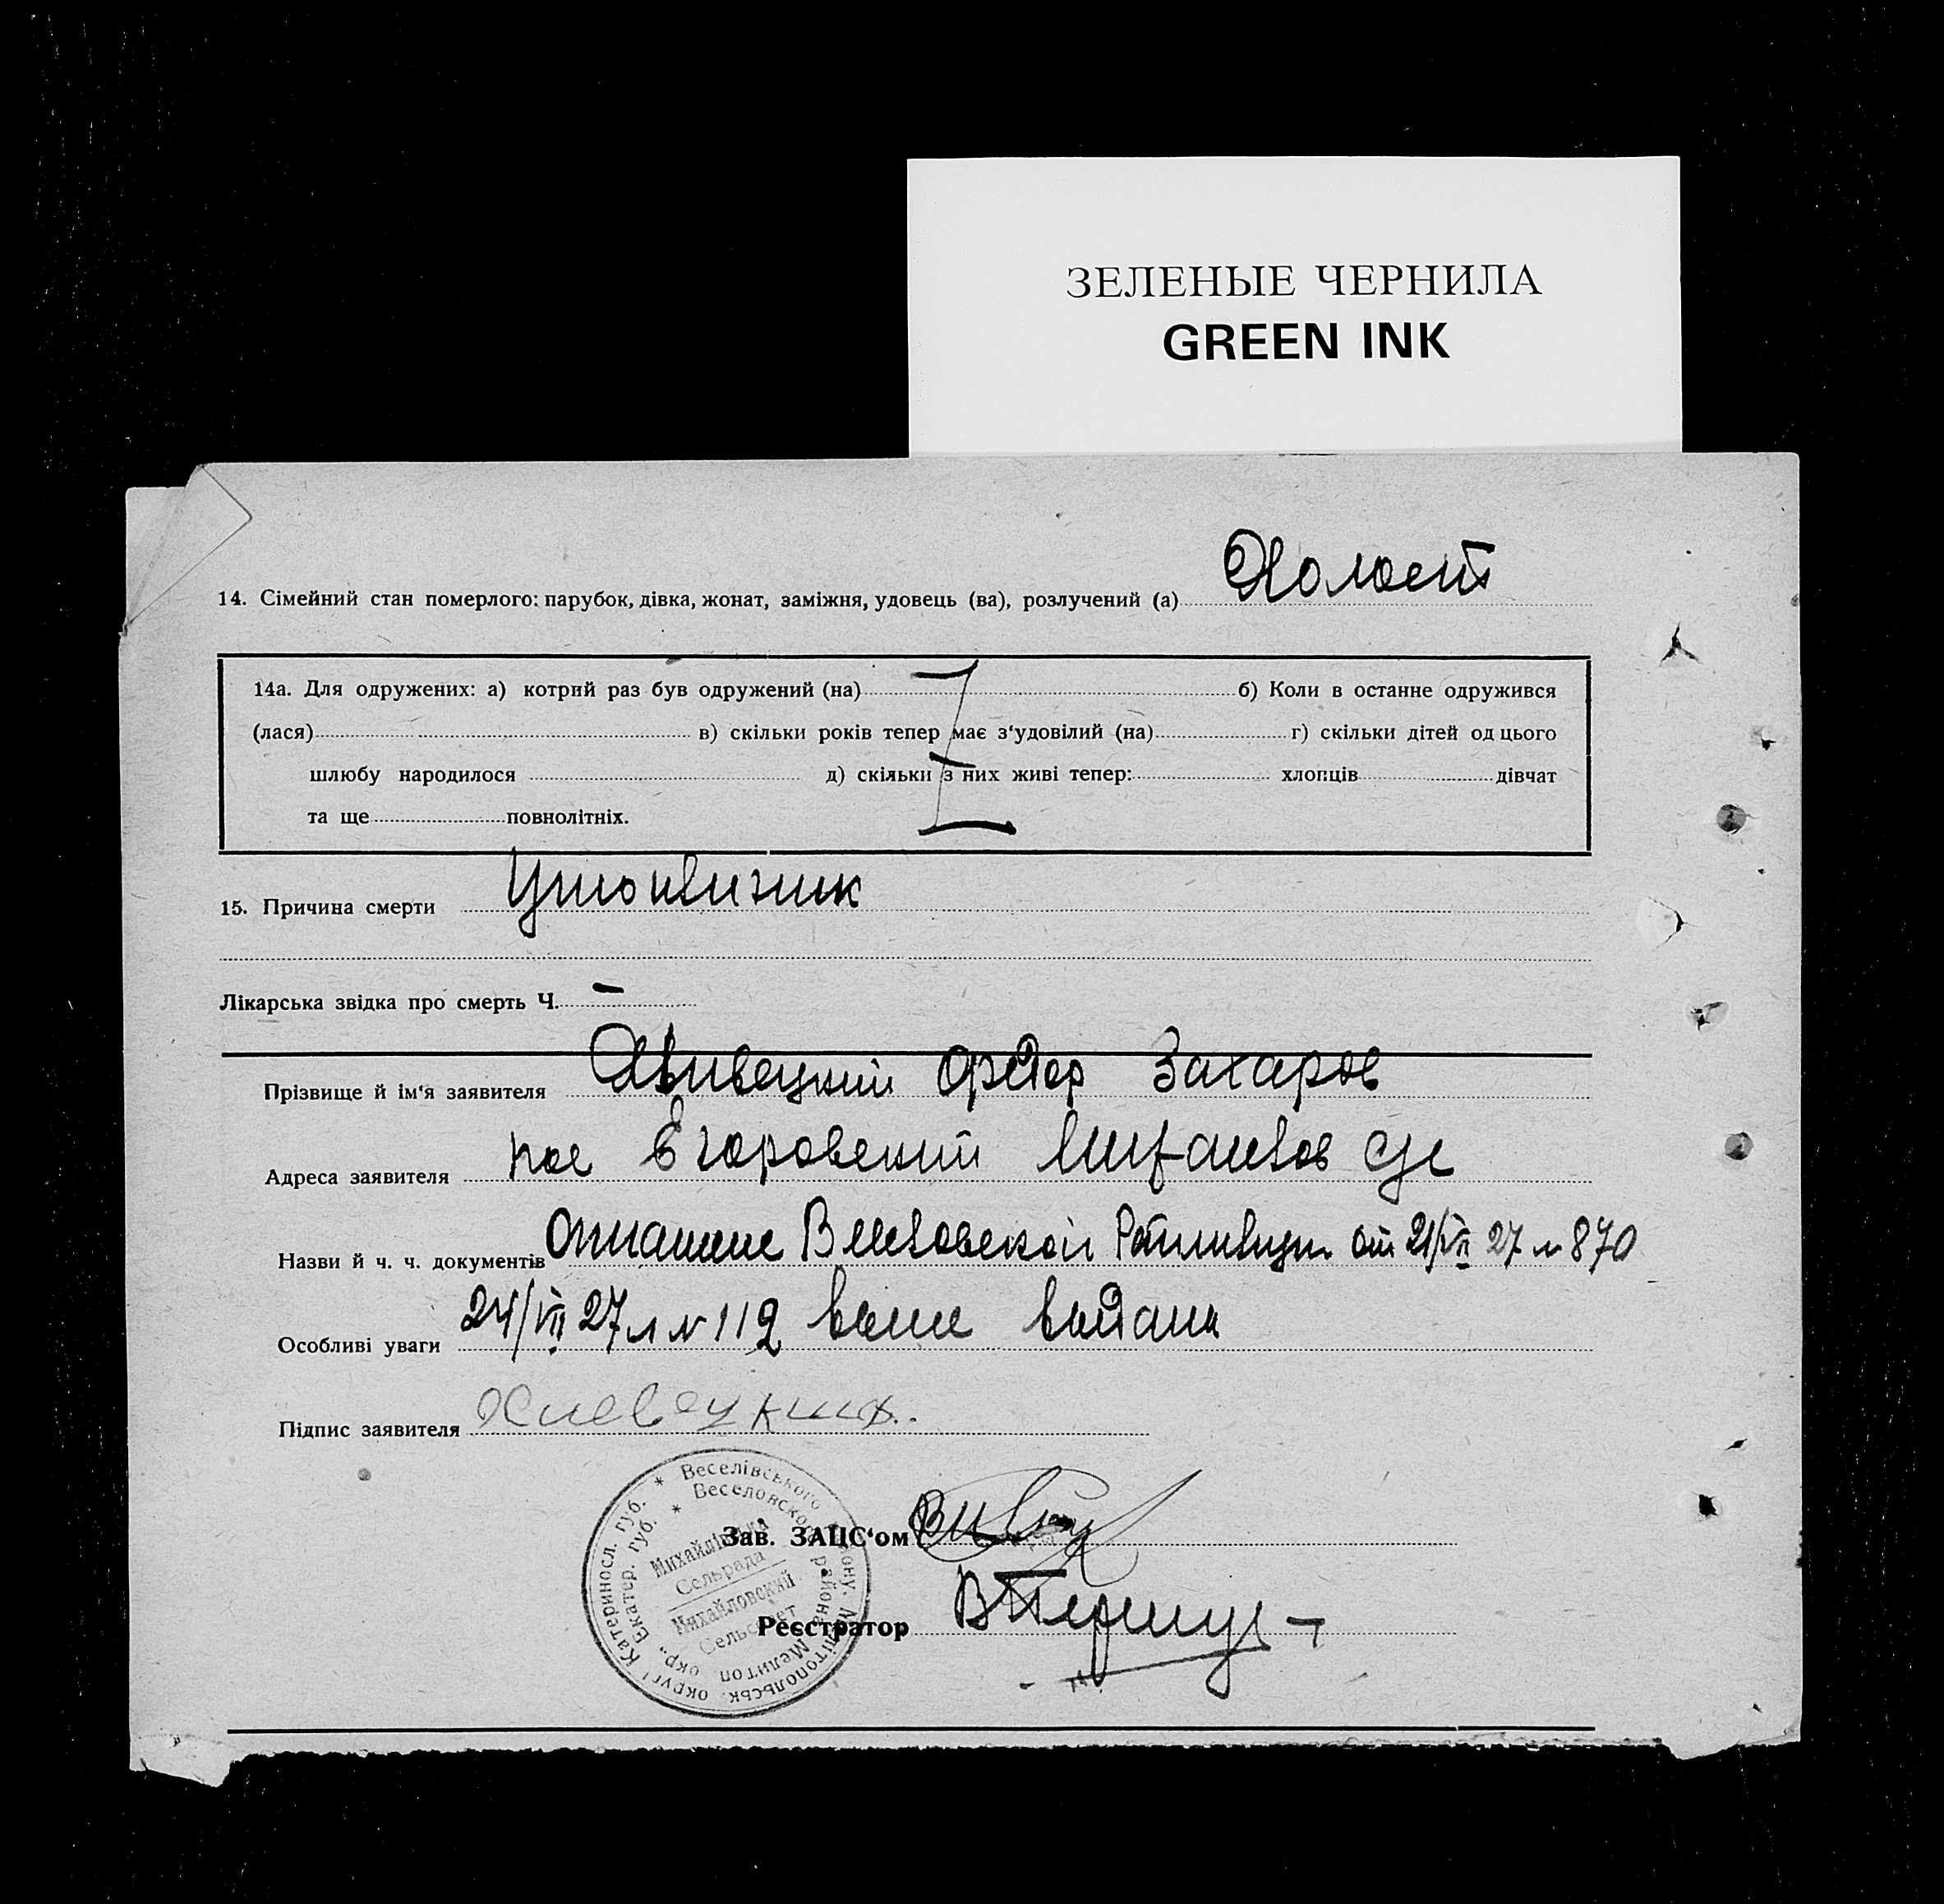 ЗЕЛЕНЫЕ ЧЕРНИЛА
GREEN INK
14. Сімейний стан померлого: парубок, дівка, жонат, заміжня, удовець (ва), розлучений (а) Холост
14а. Для одружених: а) котрий раз був одружений (на) б) Коли в останне одружився
(лася) в) скільки років тепер має з‘удовілий (на) г) скільки дітей од цього
шлюбу народилося д) скільки з них живі тепер: хлопців дівчат
та ще повнолітніх.
15. Причина смерти Утопленик
Лікарська звідка про смерть Ч. —
Прізвище й ім‘я заявителя Захаров
Адреса заявителя пос Егоровский
Назви й ч. ч. документів от 21/VII 27 № 870
Особливі уваги 24/VII 27 № 112 выдана
Підпис заявителя
Зав. ЗАЦС‘ом
Реєстратор
* Веселівського району, Мелітопольськ. округи Катериносл. губ.
* Веселовского района Мелитоп. окр., Екатер. губ.
Михайлівська
Сельрада
Михайловский
Сельсовет